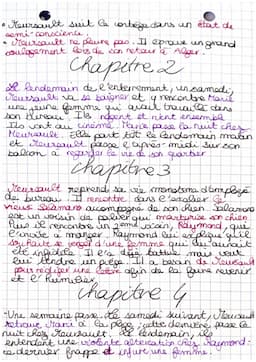 • Meursault suit le cortège dans un état de
semi-conscience.
• Meursault ne pleure pas. Il éprouve un grand
soulagement lors de son retour à Alger.
Chapitre 2
Le lendemain de l'enterrement, un samedi,
Meursault va se baigner et y rencontre Marie
une jeune femme qui avait travaillé dans
son bureau. Ils nagent et rient ensemble
Ils vont au cinéma. Marie passe la nuit chez
Meursault. Elle part tôt le lendemain matin
et Meursault passe l'après-midi sur son
balcon à regarder la vie du quartier
Chapitre 3
Meursault reprend sa vie monotone d'employé
de bureau. Il rencontre dans l'escalier le
vieux Salamano accompagné de son chien. Salamano
est un voisin de palier qui martyrise son chien
Puis il rencontre un 2ème voisin, Raymond, qui
l'invite à manger. Raymond lui explique qu'il
souhaite se venger d'une femme qui lui aurait
été infidèle. Il l'a déjà battue mais veut
lui tendre un piège. Il a besoin de Meursault
pour rédiger une lettre afin de la faire revenir
et l'humilier.
Chapitre 4
Une semaine passe. Le samedi suivant, Meursault
retrouve Marie à la plage. Cette dernière passe la
nuit chez Meursault. Le lendemain, ils
entendent une violente altercation chez Raymond:
ce dernier frappe et injure une femme.